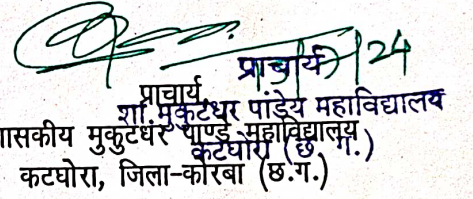 प्राचार्य
प्राचार्य
शा. मुकुटधर पांडेय महाविद्यालय
ासकीय मुकुटधर पाण्डे महाविद्यालय
कटघोरा (छ. ग.)
कटघोरा, जिला-कोरबा (छ.ग.)